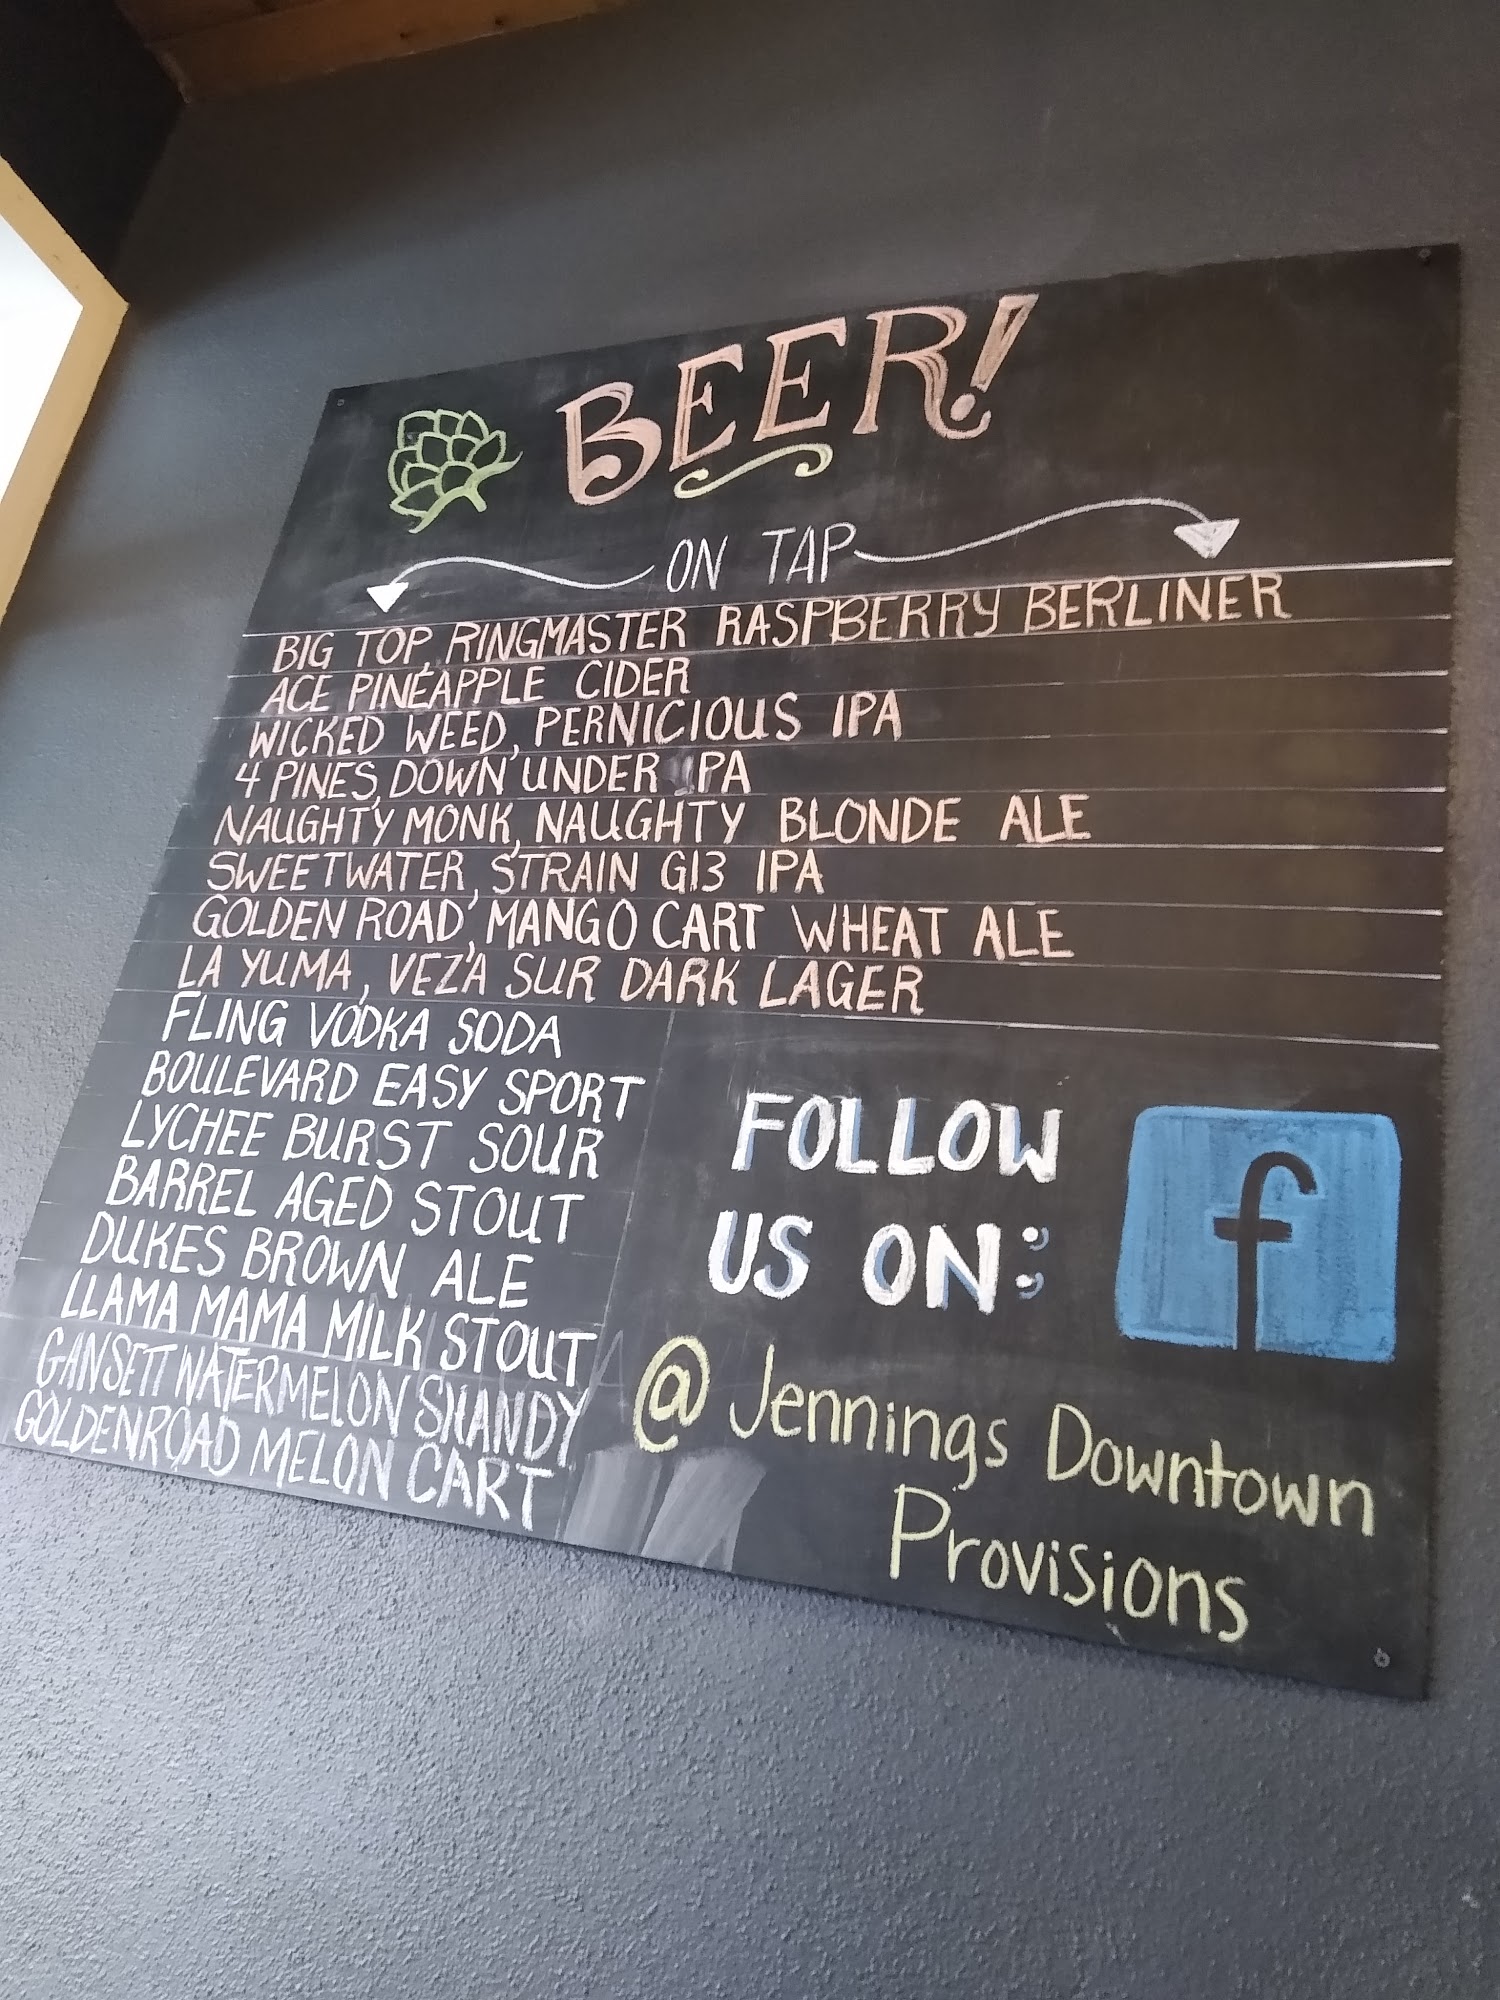 BEER!
ON TAP
BIG TOP, RINGMASTER RASPBERRY BERLINER
ACE PINEAPPLE CIDER
WICKED WEED, PERNICIOUS IPA
4 PINES, DOWN UNDER IPA
NAUGHTY MONK, NAUGHTY BLONDE ALE
SWEETWATER, STRAIN G13 IPA
GOLDEN ROAD, MANGO CART WHEAT ALE
LA YUMA, VEZ'A SUR DARK LAGER
FLING VODKA SODA
BOULEVARD EASY SPORT
LYCHEE BURST SOUR
BARREL AGED STOUT
DUKES BROWN ALE
LLAMA MAMA MILK STOUT
GANSETT WATERMELON SHANDY
GOLDENROAD MELON CART
FOLLOW
US ON:
f
@ Jennings Downtown
Provisions